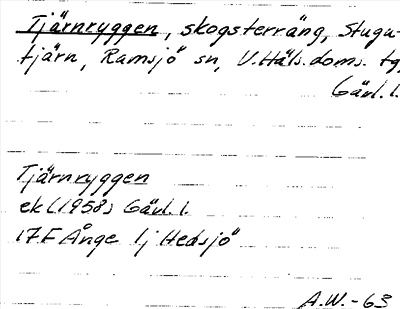 Tjärnryggen, skogsterräng, Stugu-
tjärn, Ramsjö sn, V.Häls.doms. tg,
Gävl.l.
Tjärnryggen
ek (1958) Gävl.l.
17F Ånge 1j Hedsjö
A.W.-63